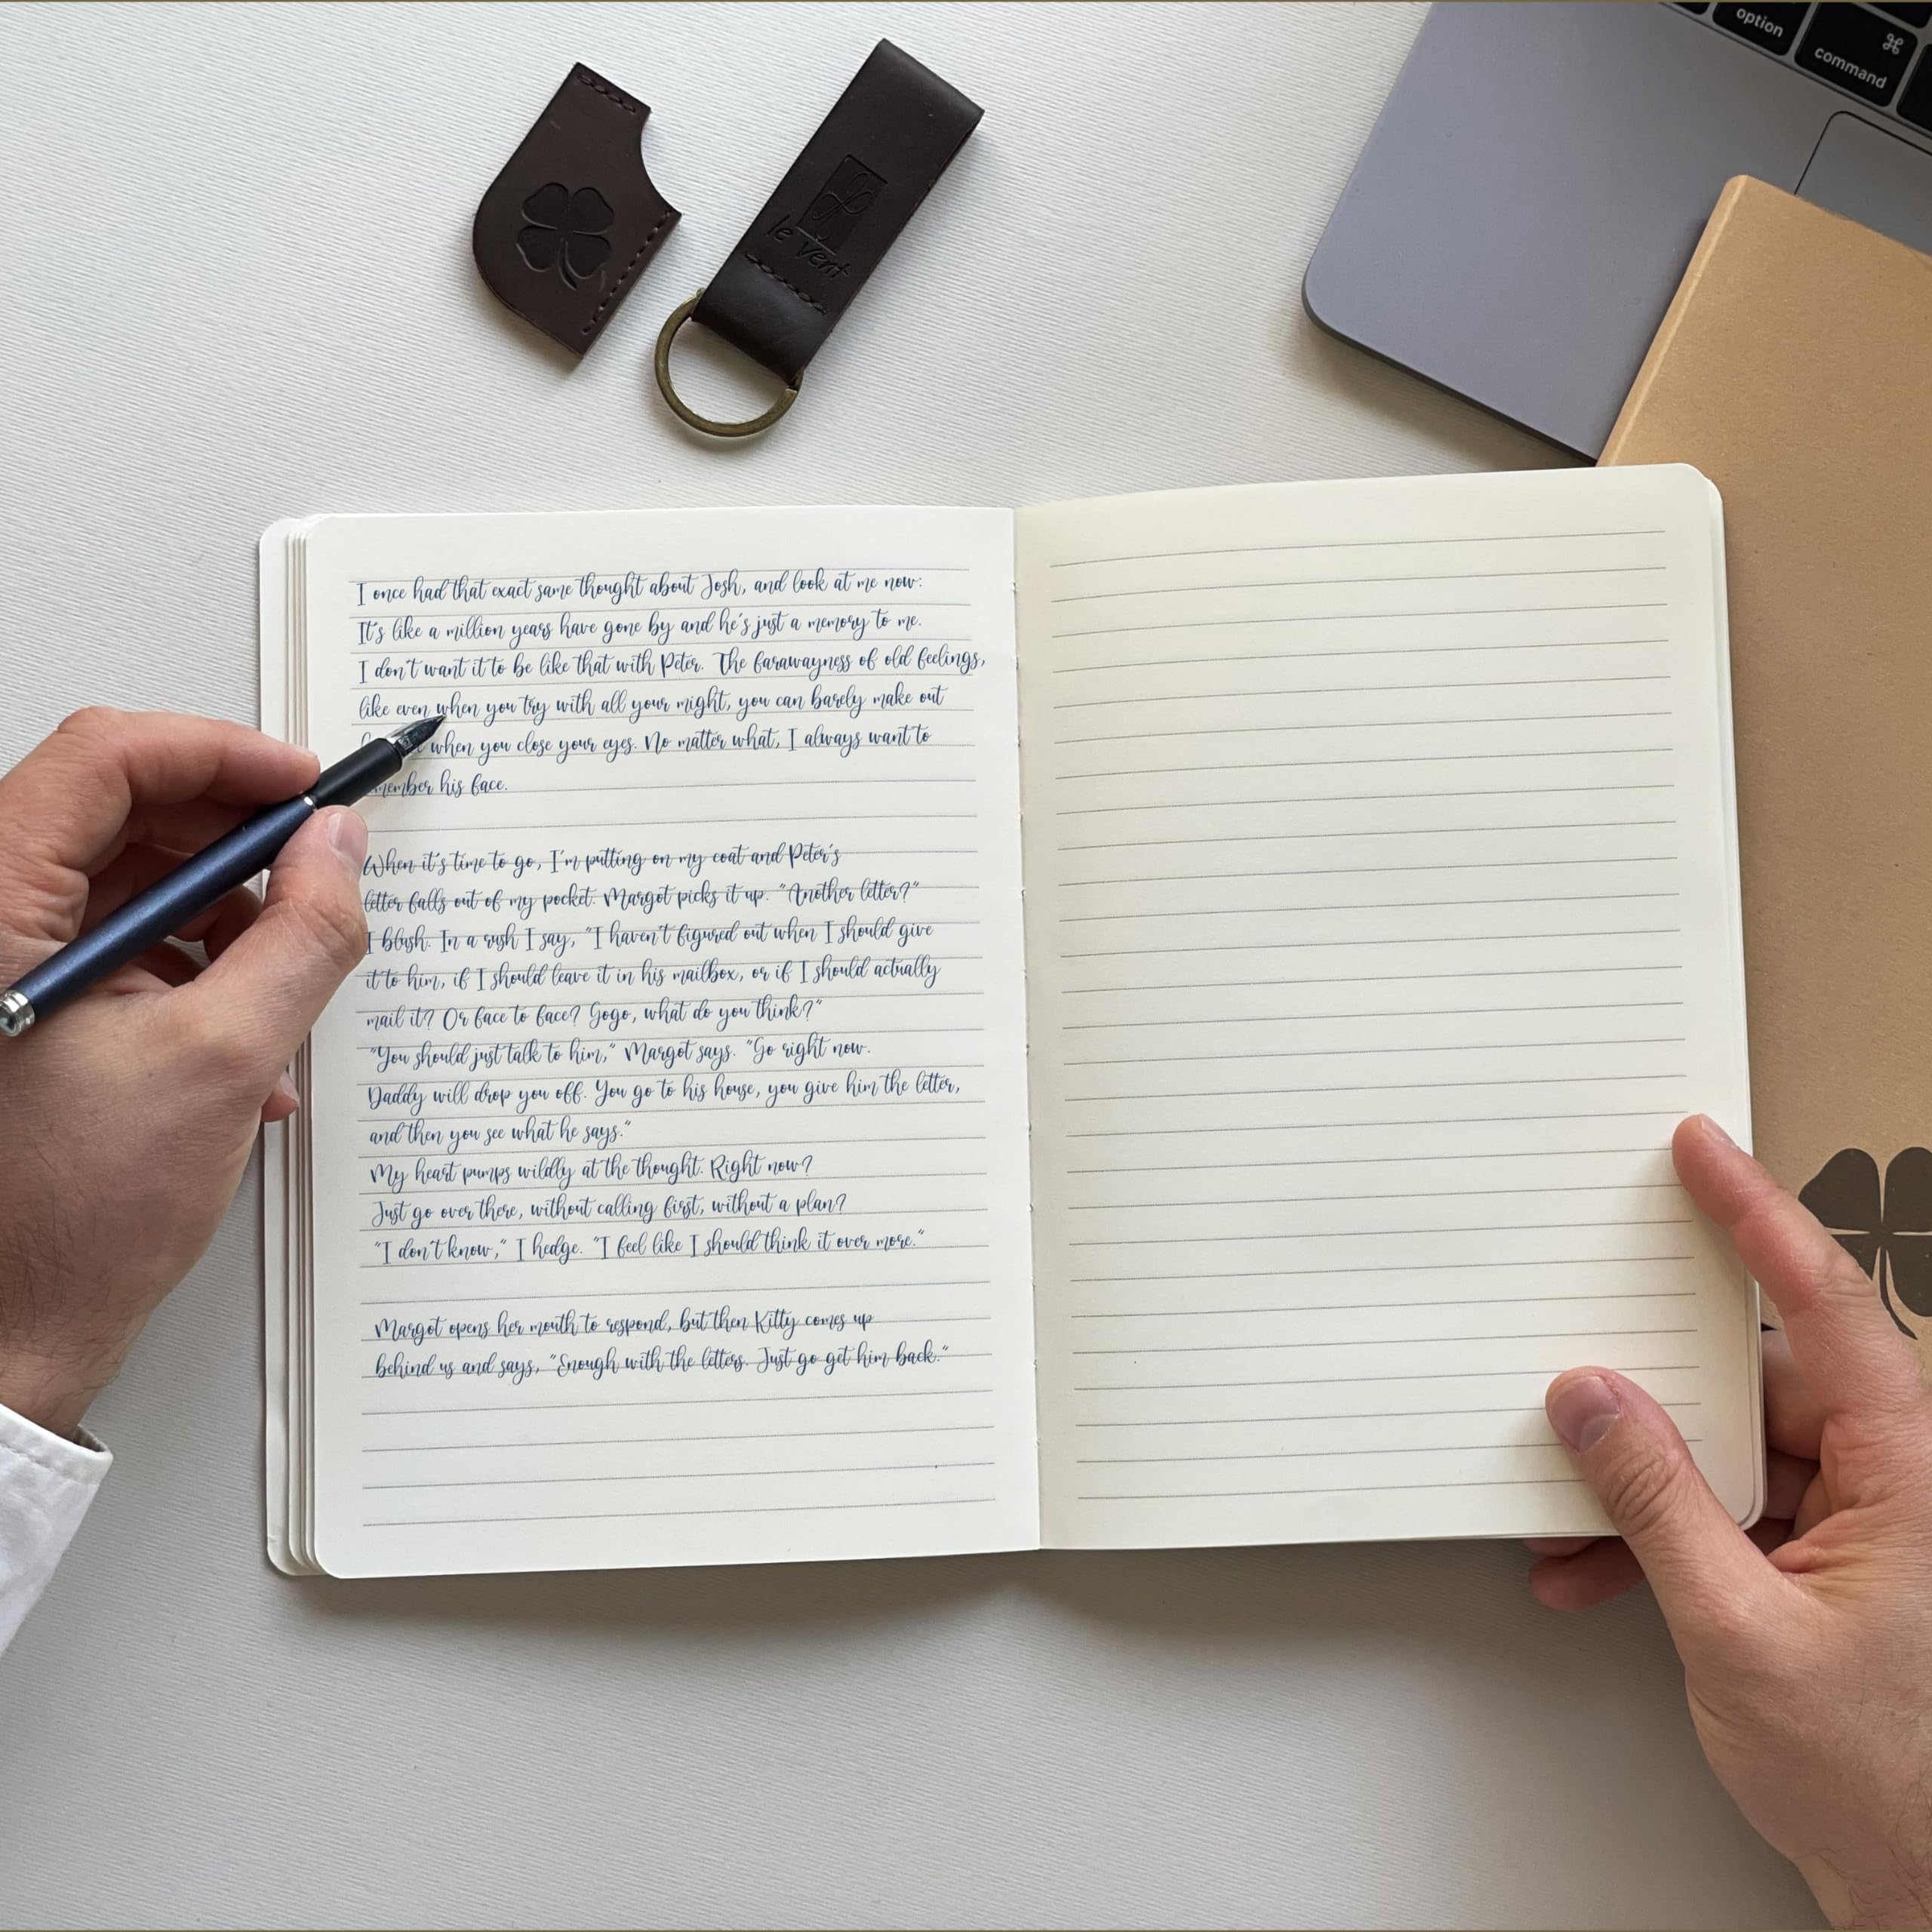 option
⌘
command
le vent
I once had that exact same thought about Josh, and look at me now:
It's like a million years have gone by and he's just a memory to me.
I don't want it to be like that with Peter. The farawayness of old feelings,
like even when you try with all your might, you can barely make out
when you close your eyes. No matter what, I always want to
his face.
When it's time to go, I'm putting on my coat and Peter's
letter falls out of my pocket. Margot picks it up. "Another letter?"
I blush. In a rush I say, "I haven't figured out when I should give
it to him, if I should leave it in his mailbox, or if I should actually
mail it? Or face to face? Gogo, what do you think?"
"You should just talk to him," Margot says. "Go right now.
Daddy will drop you off. You go to his house, you give him the letter,
and then you see what he says."
My heart pumps wildly at the thought. Right now?
Just go over there, without calling first, without a plan?
"I don't know," I hedge. "I feel like I should think it over more."
Margot opens her mouth to respond, but then Kitty comes up
behind us and says, "Enough with the letters. Just go get him back."